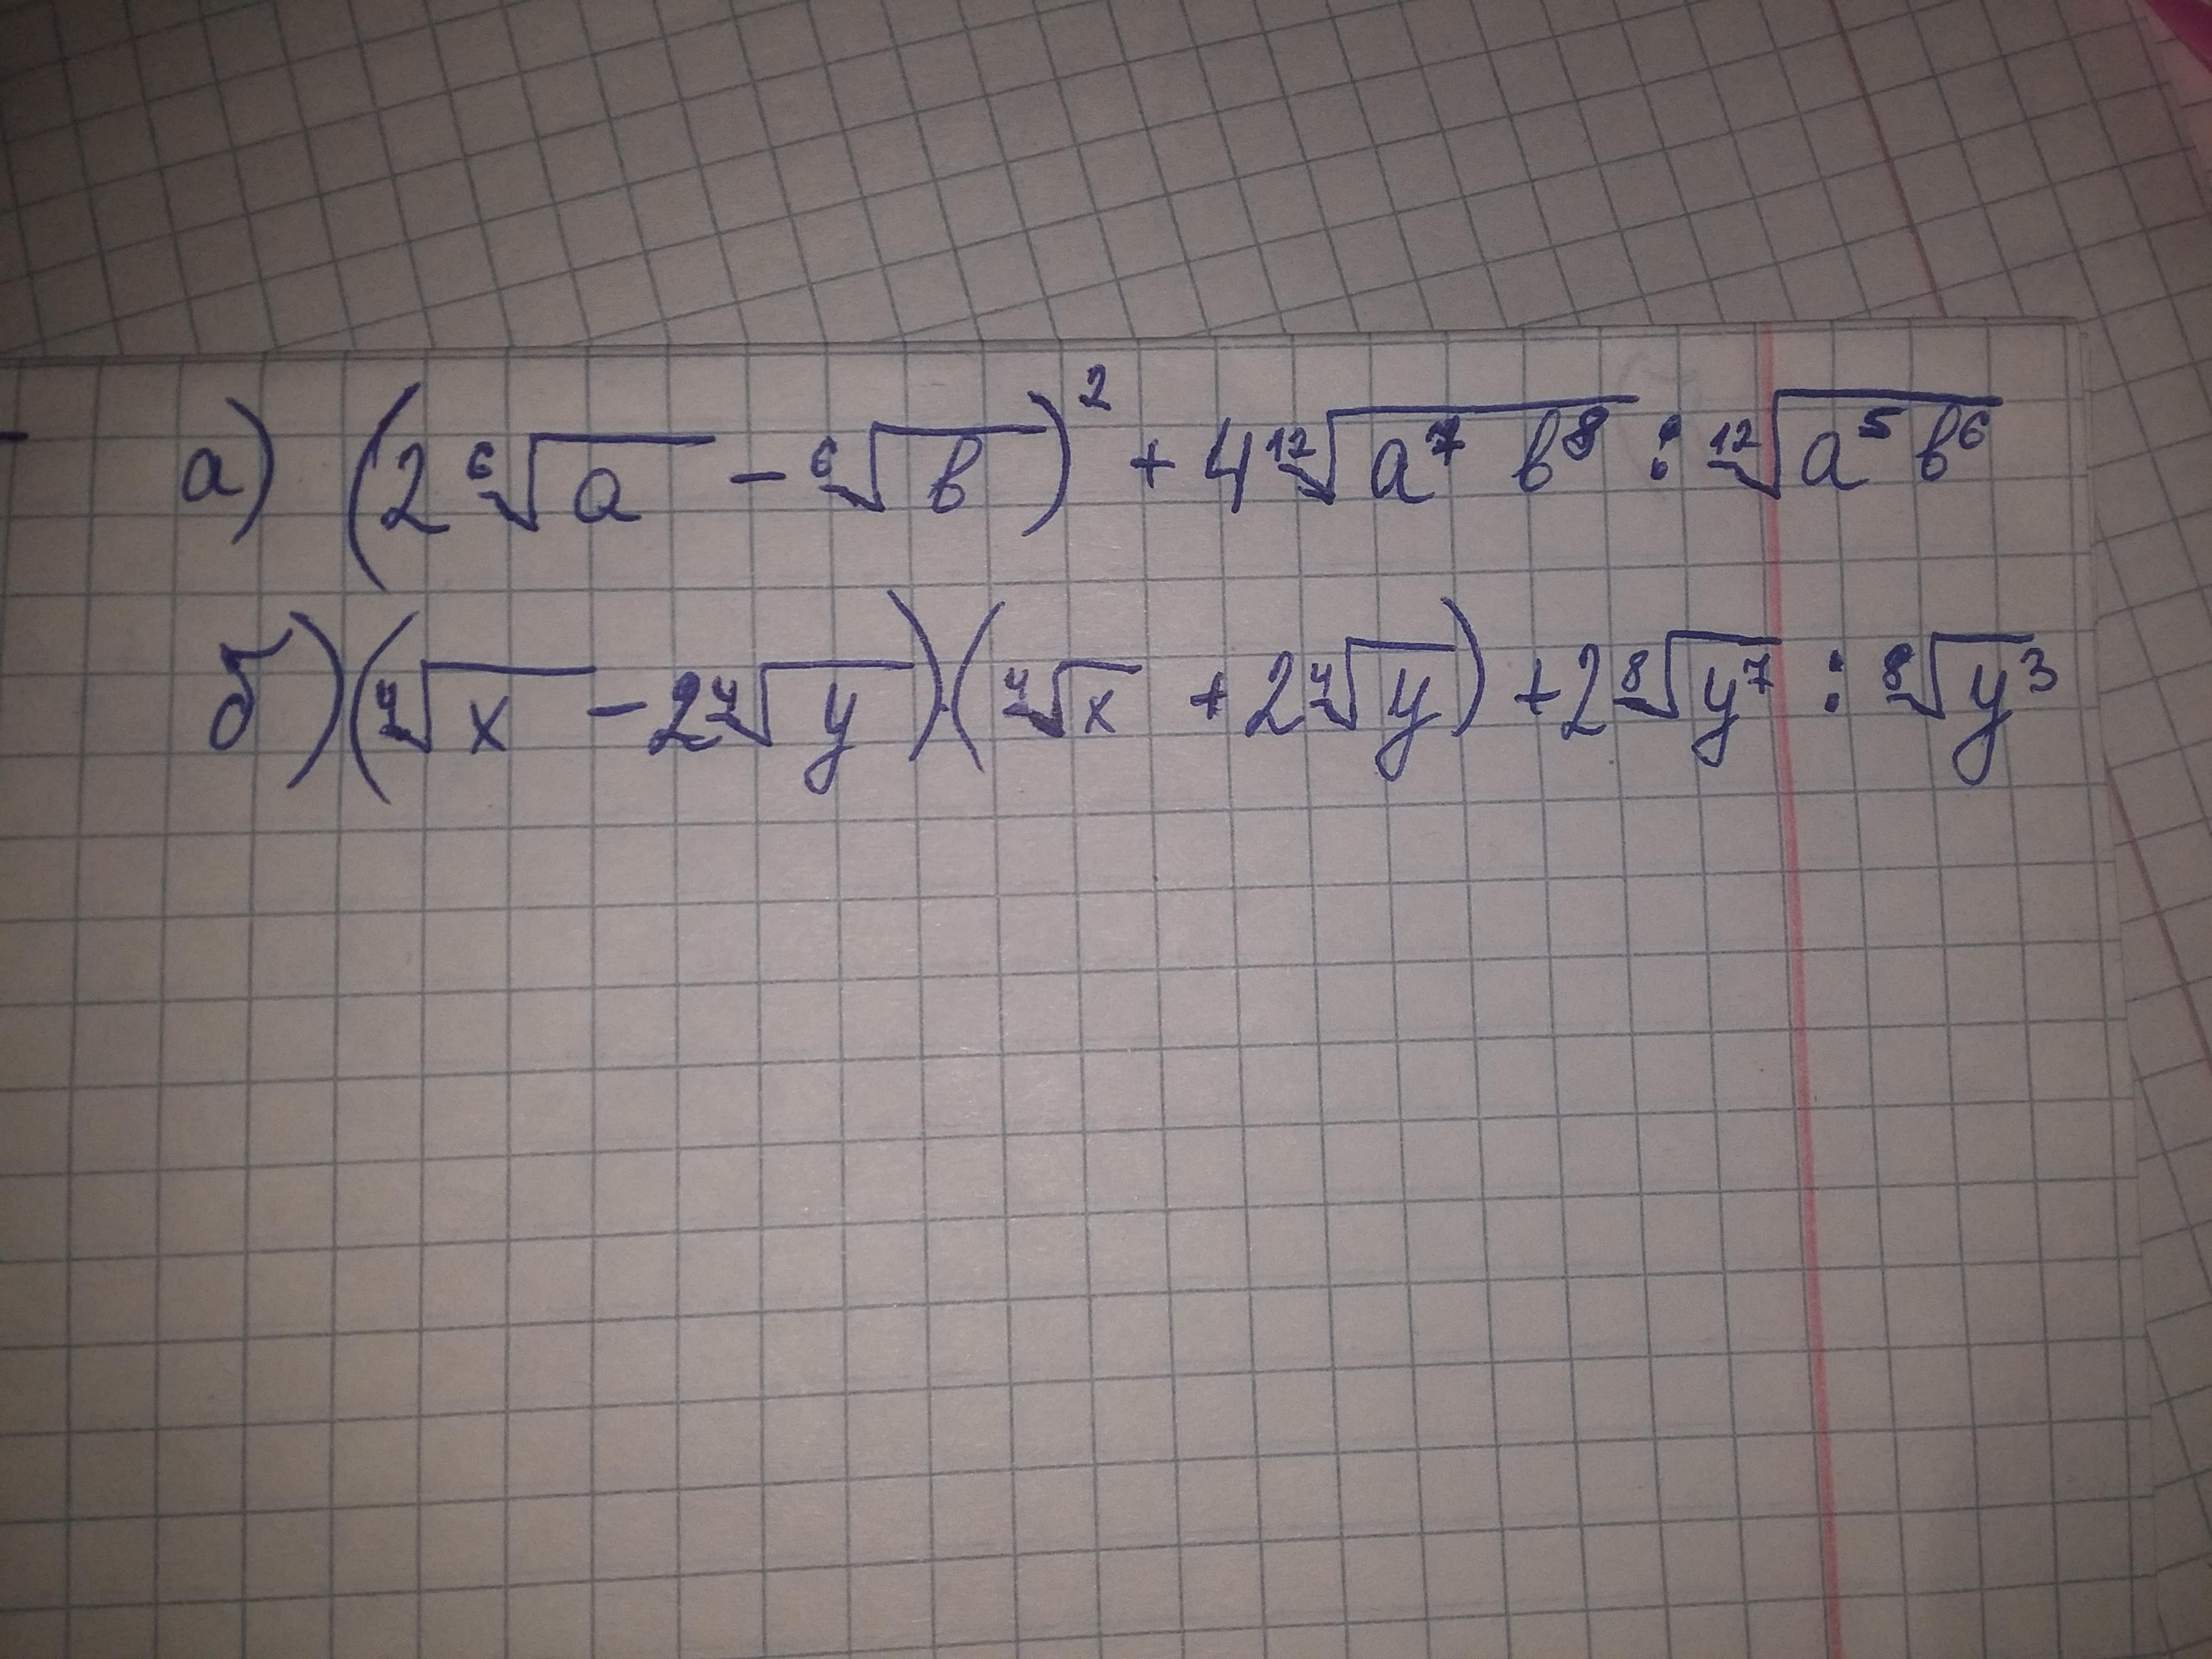 а) (2⁶√a − ⁶√b)² + 4¹²√(a⁷ b⁸) : ¹²√(a⁵ b⁶)
б) (⁴√x − 2⁴√y)·(⁴√x + 2⁴√y) + 2⁸√(y⁷) : ⁸√(y³)